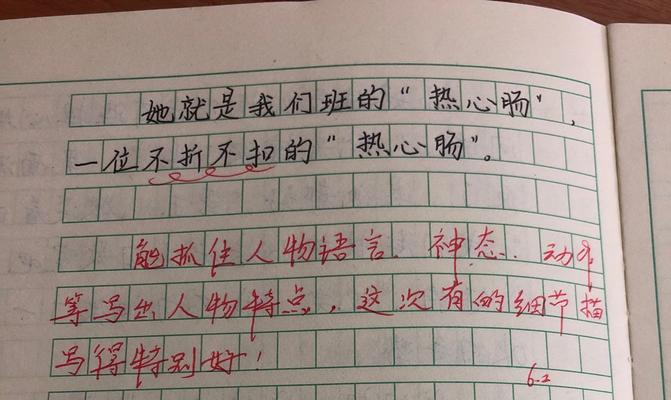 她就是我们班的“热心肠”，
一位不折不扣的“热心肠”。
能抓住人物语言、神态、动作
等写出人物特点，这次有的细节描
写得特别好！
6.2